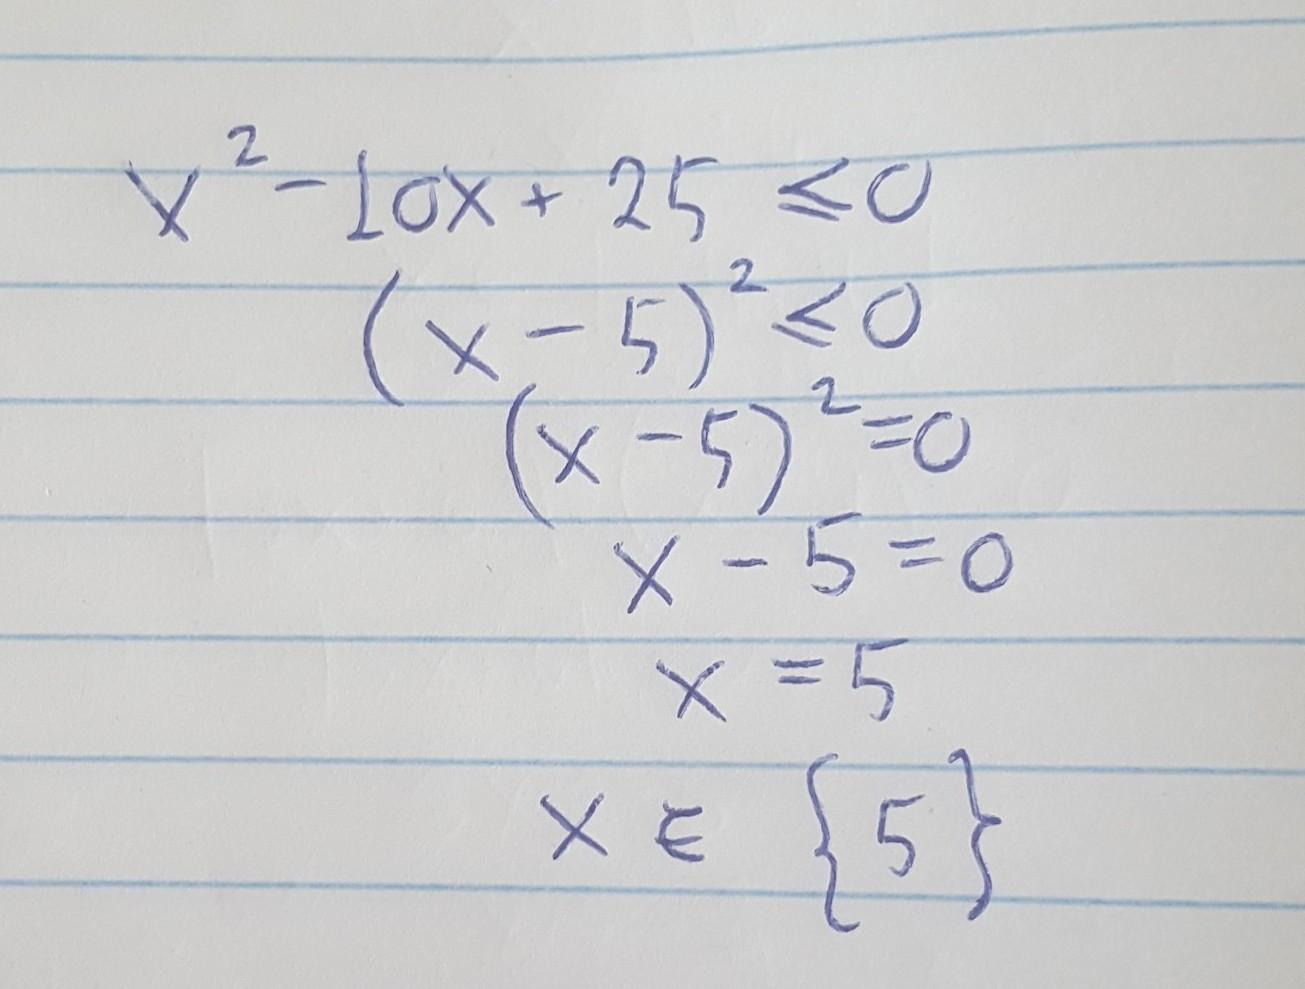 x² - 10x + 25 ≤ 0
(x - 5)² ≤ 0
(x - 5)² = 0
x - 5 = 0
x = 5
x ∈ {5}